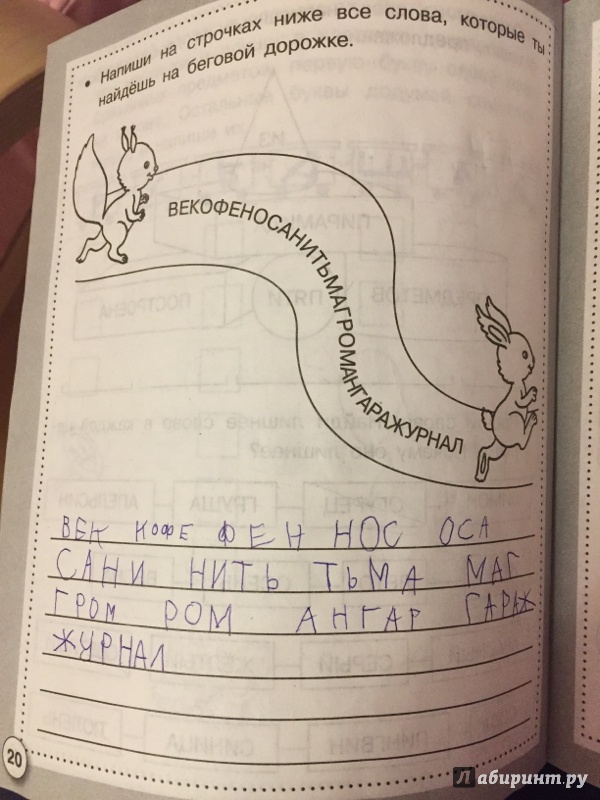 • Напиши на строчках ниже все слова, которые ты
найдёшь на беговой дорожке.
ВЕКОФЕНОСАНИТЬМАГРОМАНГАРАЖУРНАЛ
ВЕК КОФЕ ФЕН НОС ОСА
САНИ НИТЬ ТЬМА МАГ
ГРОМ РОМ АНГАР ГАРАЖ
ЖУРНАЛ
20
Лабиринт.ру